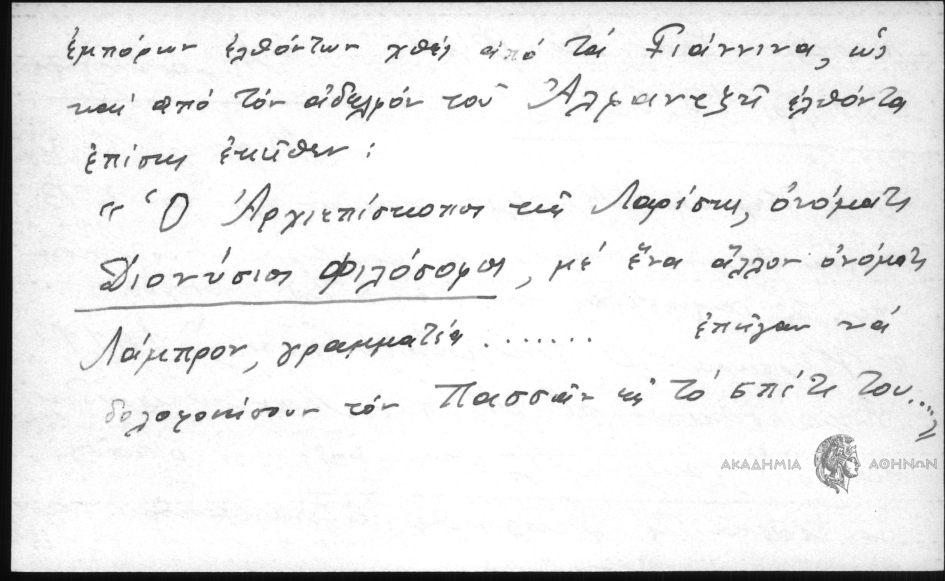 ἐμπόρων ἐλθόντων χθές ἀπό τά Γιάννινα, ὡς
καί ἀπό τόν ἀδελφόν τοῦ Ἀλφαντζῆ ἐλθόντα
ἐπίσης ἐκεῖθεν :
« Ὁ Ἀρχιεπίσκοπος τῆς Λαρίσης, ὀνόματι
Διονύσιος Φιλόσοφος, μέ ἕνα ἄλλον ὀνόματι
Λάμπρον, γραμματέα ....... ἐπῆγαν νά
δολοφονήσουν τόν Πασσᾶν εἰς τό σπίτι του...»
ΑΚΑΔΗΜΙΑ ΑΘΗΝΩΝ